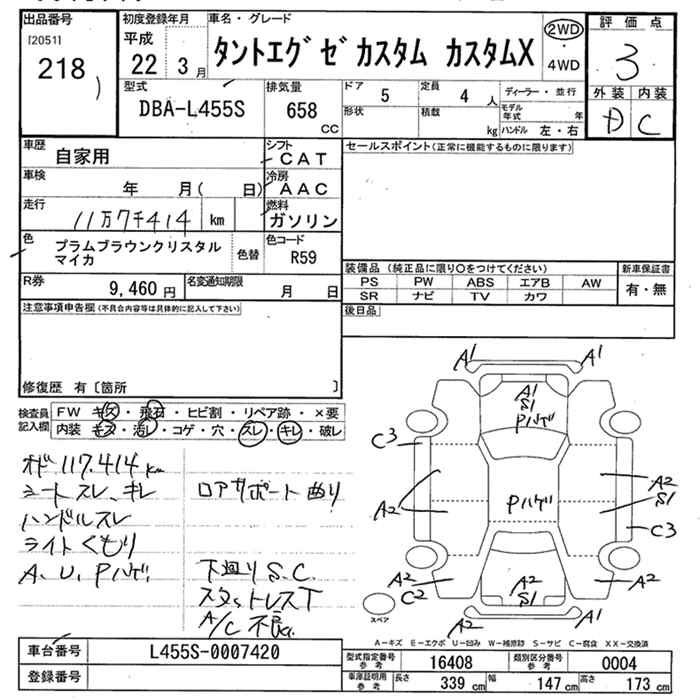 出品番号
[2051]
218
初度登録年月
平成 22 年 3 月
車名・グレード
タントエグゼ カスタム カスタムX
2WD
・
4WD
評価点
3
外装 内装
D C
型式
DBA-L455S
排気量
658 CC
ドア 5
定員 4 人
形状
積載 kg
ディーラー・並行
モデル年式 年
ハンドル 左・右
車歴
自家用
シフト
CAT
車検
年 月( 日)
冷房
AAC
走行
11万7千414 km
燃料
ガソリン
色
プラムブラウンクリスタル
マイカ
色替
色コード
R59
R券
9,460 円
名変通知期限
月 日
セールスポイント(正常に機能するものに限ります)
装備品 (純正品に限り○をつけてください)
PS PW ABS エアB AW
SR ナビ TV カワ
新車保証書
有・無
後日品
注意事項申告欄(不具合内容等は具体的に記入して下さい)
修復歴 有〔箇所 〕
検査員
記入欄
FW キズ・飛石・ヒビ割・リペア跡・×要
内装 キズ・汚レ・コゲ・穴・スレ・キレ・破レ
オド 117.414 km
シート スレ、キレ
ハンドルスレ
ライトくもり
A、U、Pハゲ
ロアサポート曲り
下廻り S.C.
スタットレスT
A/C 不良
A1 A1
A1
S1
Pハゲ
C3
A2
Pハゲ
A2
S1
C3
A2
C2
A2
S1
A2
A2
A1
スペア
A-キズ E-エクボ U-凹み W-補修跡 S-サビ C-腐食 XX-交換済
車台番号
L455S-0007420
登録番号
型式指定番号
参考
16408
類別区分番号
参考
0004
車庫証明用
参考
長さ 339 cm
幅 147 cm
高さ 173 cm